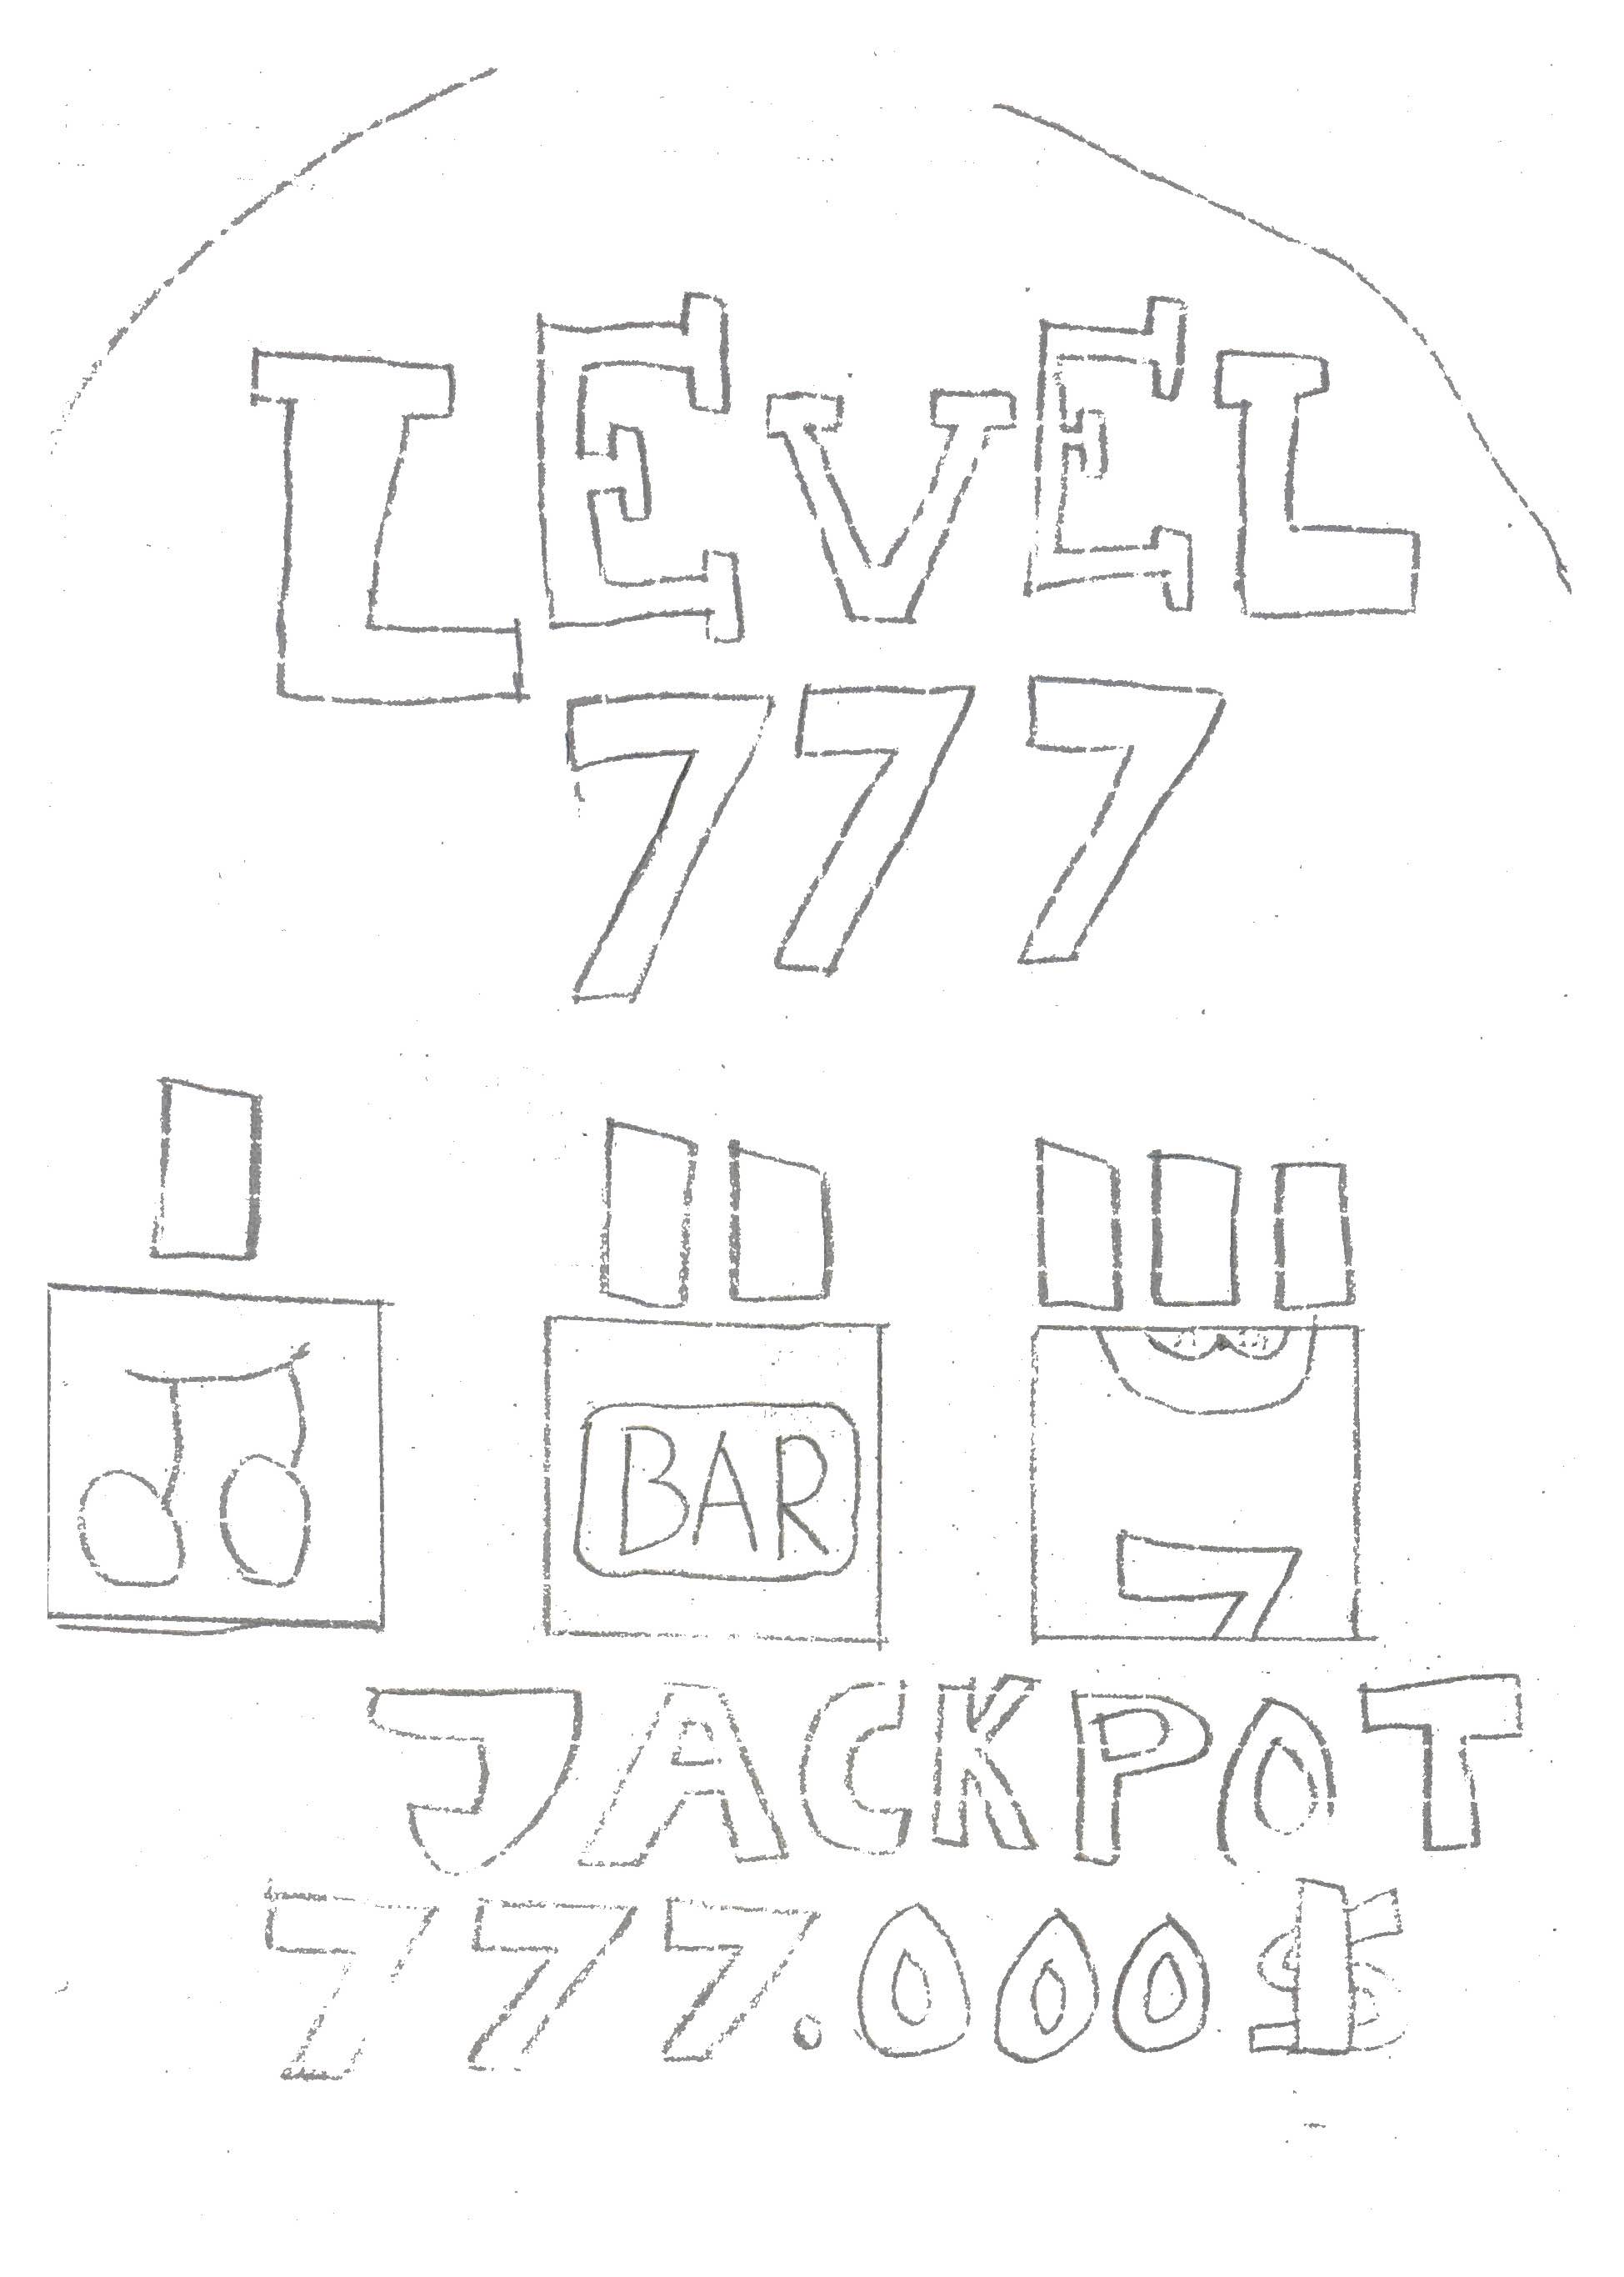 LEVEL
777
BAR
7
JACKPOT
777.000$